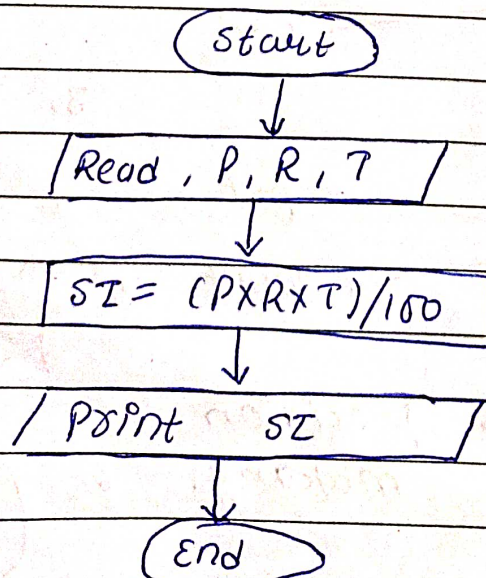 Start
Read , P, R, T
SI = (PXRXT)/100
Print SI
End